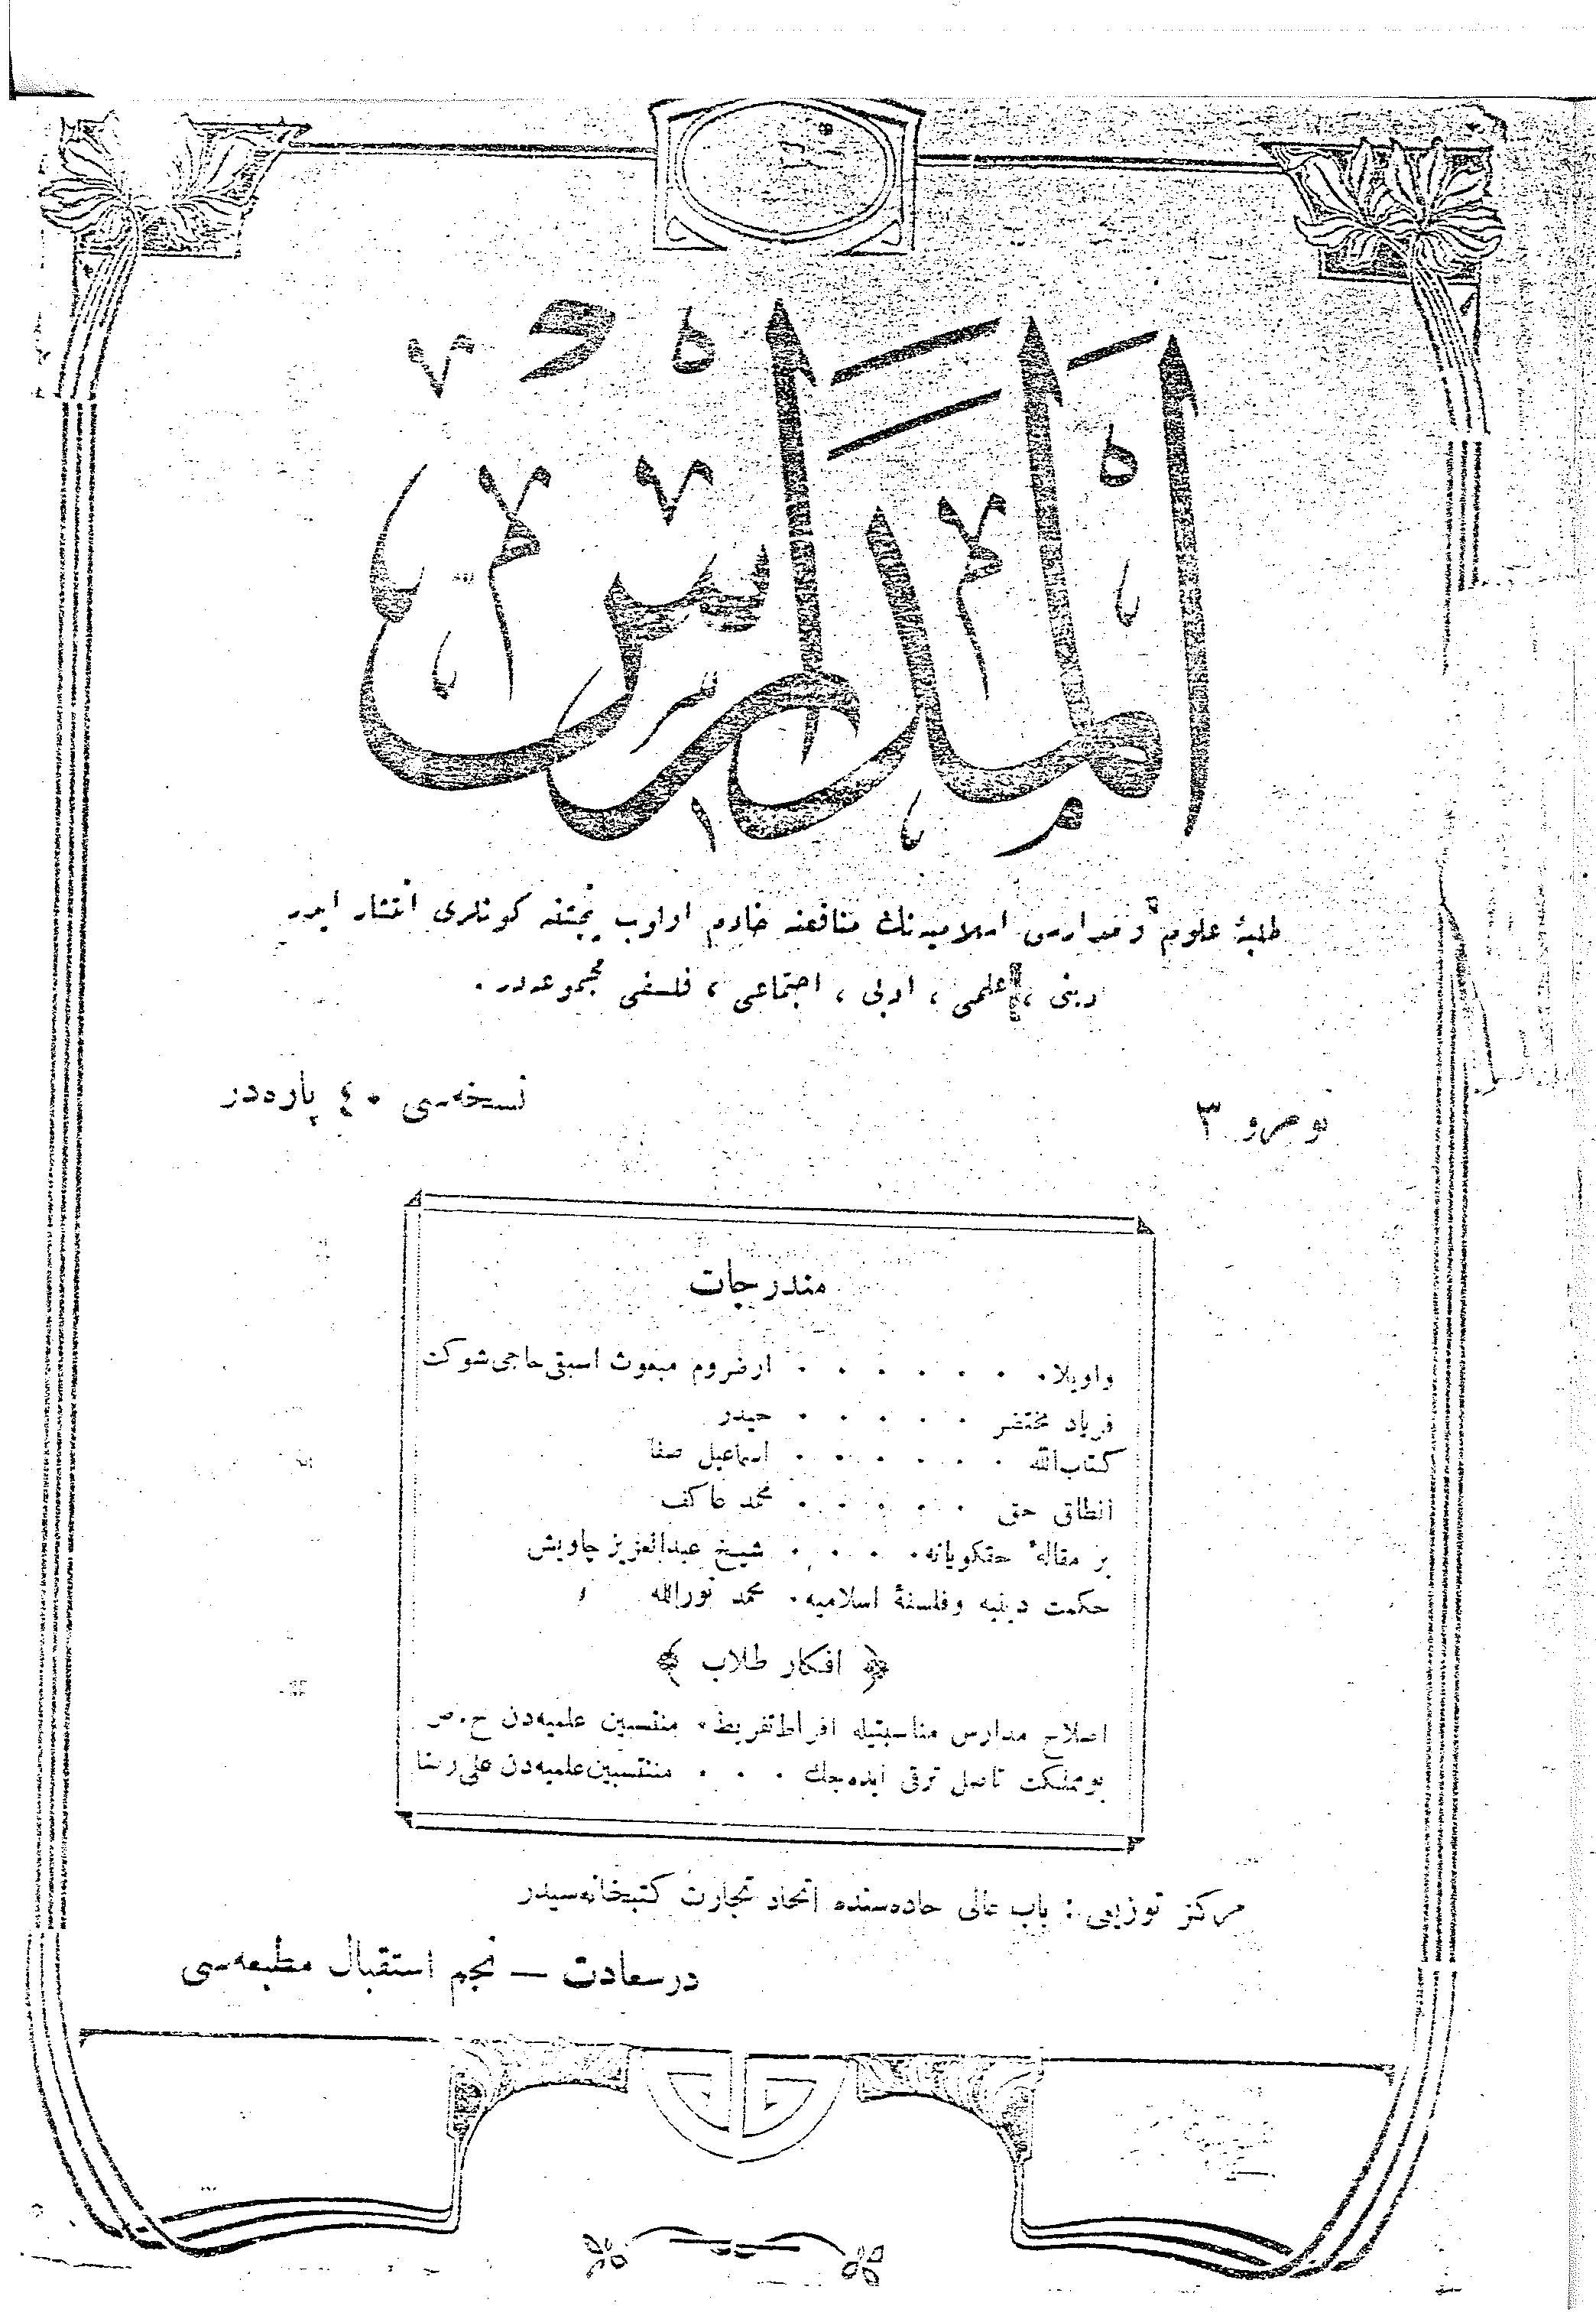 المدارس
طلبهٔ علوم و مدارس اسلامیه‌نك منافعنه خادم اولوب پنجشنبه كونلری انتشار ایدر
دینی ، علمی ، ادبی ، اجتماعی ، فلسفی مجموعه‌در .
نومرو ۳
نسخه‌سی ٤٠ پاره‌در
مندرجات
واویلا . . . . . . . ارضروم مبعوث اسبقی حاجی شوكت
فریاد محتضر . . . . . حیدر
كتاب‌الله . . . . . . اسماعیل صفا
انطاق حق . . . . . محمد عاكف
بر مقالهٔ حقكویانه . . . . شیخ عبدالعزیز چاویش
حكمت دینیه وفلسفهٔ اسلامیه . محمد نورالله
﴿ افكار طلاب ﴾
اصلاح مدارس مناسبتیله افراط تفریط . منتسبین علمیه‌دن ح . ص
بو مملكت ناصل ترقی ایده‌جك . . . منتسبین علمیه‌دن علی رضا
مركز توزیعی : باب عالی جاده‌سنده اتحاد تجارت كتبخانه‌سیدر
درسعادت — نجم استقبال مطبعه‌سی